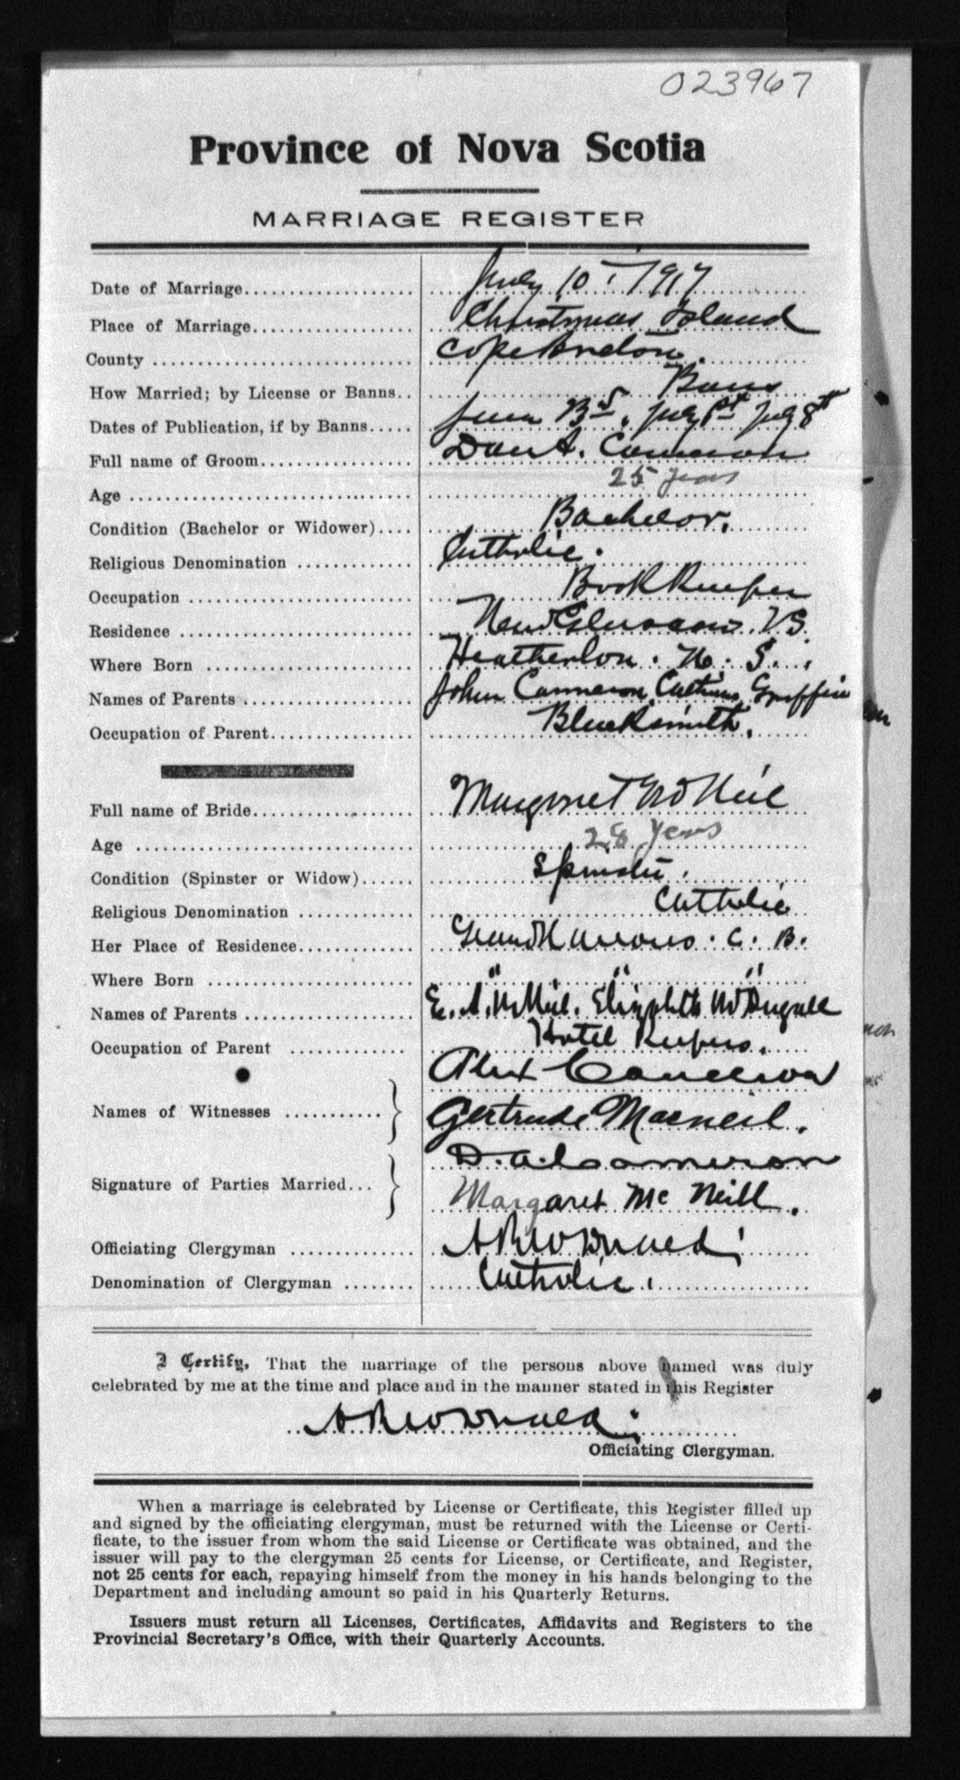 023967
Province of Nova Scotia
MARRIAGE REGISTER
Date of Marriage.................... July 10th 1917
Place of Marriage................... Christmas Island
County ............................. Cape Breton.
How Married; by License or Banns.. Banns
Dates of Publication, if by Banns..... July 1st July 8th
Full name of Groom.................. Dan A. Cameron
Age ................................ 25 years
Condition (Bachelor or Widower).... Bachelor.
Religious Denomination ............. Catholic.
Occupation ......................... Book Keeper
Residence .......................... New Glasgow N S.
Where Born ......................... Heatherton. N. S.
Names of Parents ................... John Cameron Griffin
Occupation of Parent................ Blacksmith.
Full name of Bride.................. Margaret McNeil
Age ................................ 28 years
Condition (Spinster or Widow)...... Spinster.
Religious Denomination ............. Catholic
Her Place of Residence............. Grand Narrows. C. B.
Where Born ........................ " " "
Names of Parents ................... McNeil. Elizabeth McDugall
Occupation of Parent ............. Hotel Keepers.
Names of Witnesses ........... } Alex Cameron
Gertrude Macneil.
Signature of Parties Married... } D. A. Cameron
Margaret Mc Neill.
Officiating Clergyman ............. A R McDonald
Denomination of Clergyman ........ Catholic.
I Certify, That the marriage of the persons above named was duly
celebrated by me at the time and place and in the manner stated in this Register
A R McDonald
Officiating Clergyman.
When a marriage is celebrated by License or Certificate, this Register filled up
and signed by the officiating clergyman, must be returned with the License or Certi-
ficate, to the issuer from whom the said License or Certificate was obtained, and the
issuer will pay to the clergyman 25 cents for License, or Certificate, and Register,
not 25 cents for each, repaying himself from the money in his hands belonging to the
Department and including amount so paid in his Quarterly Returns.
Issuers must return all Licenses, Certificates, Affidavits and Registers to the
Provincial Secretary's Office, with their Quarterly Accounts.